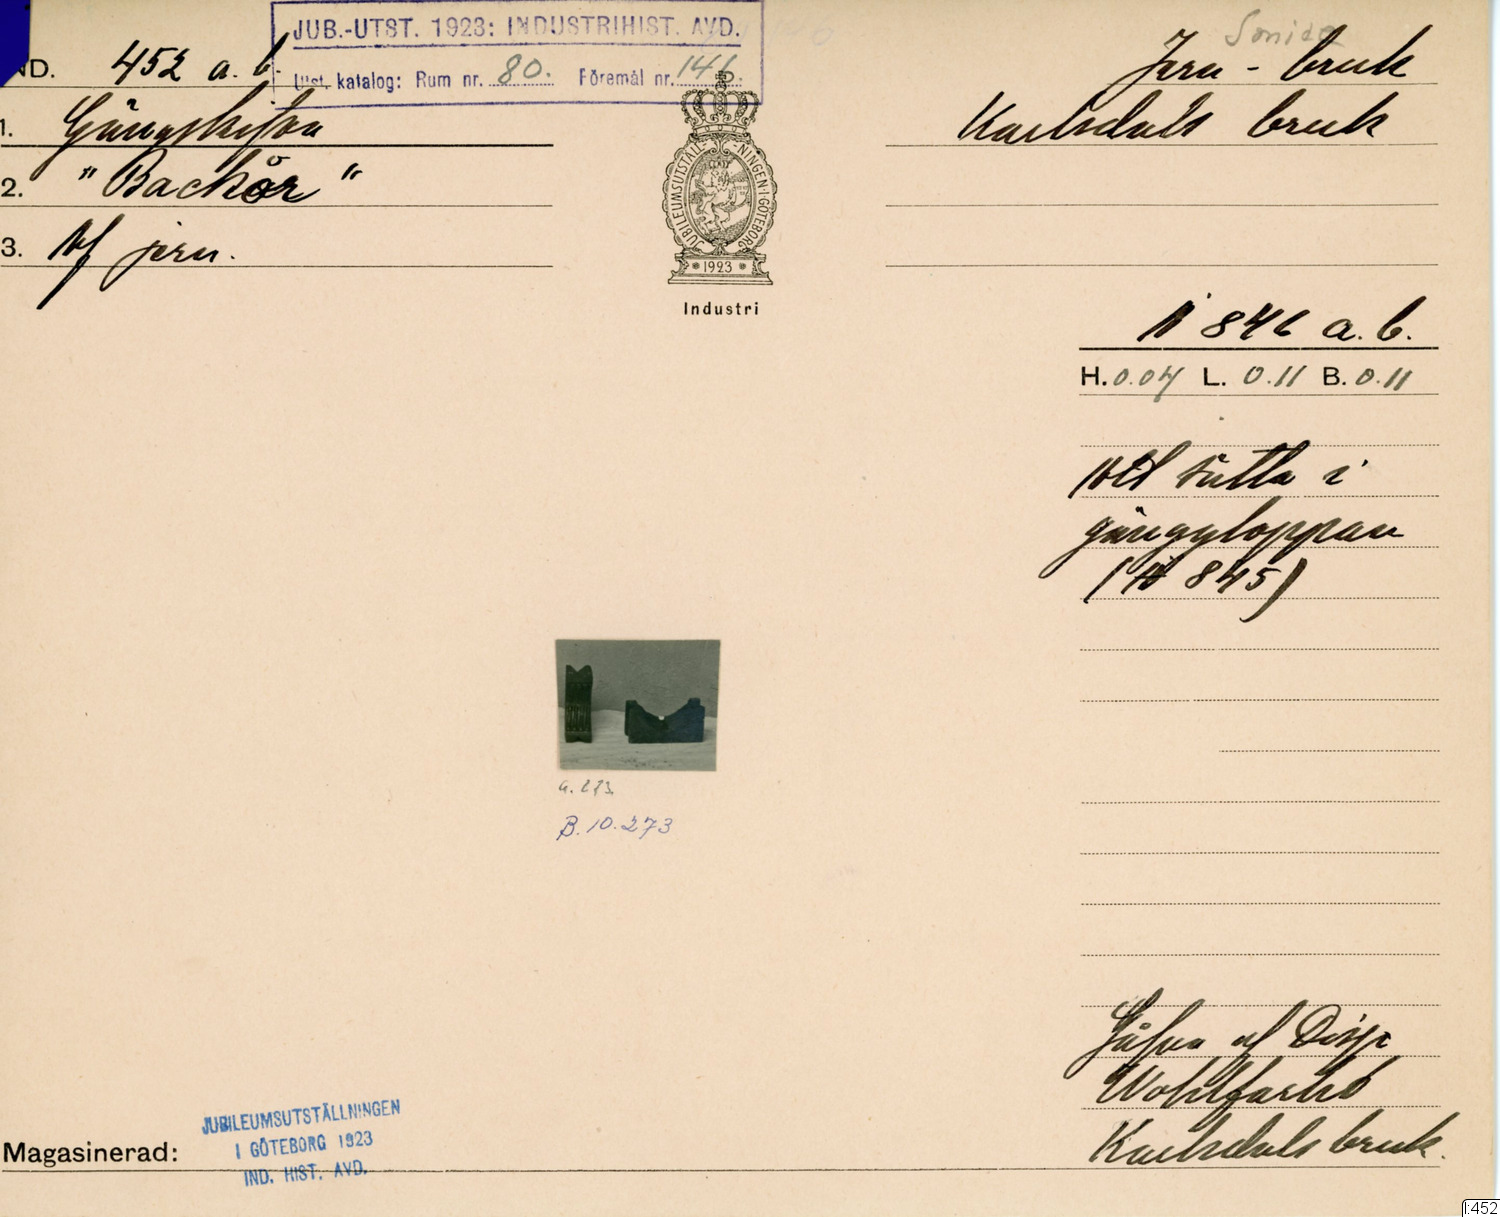 JUB.-UTST. 1923: INDUSTRIHIST. AVD.
Utst. katalog: Rum nr. 80. Föremål nr. 146
ND. 452 a. b.
1.
2. "Backor"
3. Af jern.
JUBILEUMSUTSTÄLLNINGEN·I·GÖTEBORG
*1923*
Industri
Jern - bruk
Karlsdals bruk
N 846 a. b.
H. 0.04 L. 0.11 B. 0.11
Att sätta i
gängkloppan
(N 845)
B. 10.273
Gåfva af Disp.
Wohlfarth
Karlsdals bruk.
Magasinerad:
JUBILEUMSUTSTÄLLNINGEN
I GÖTEBORG 1923
IND. HIST. AVD.
I:452